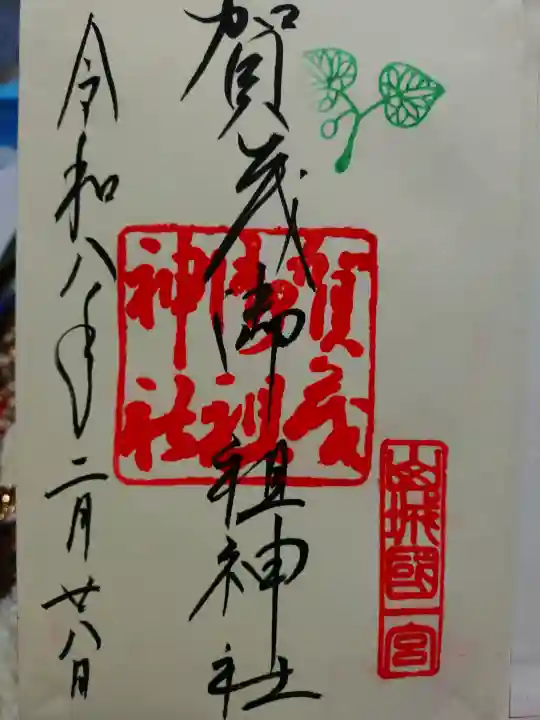 山城國一宮
賀茂御祖神社
賀茂
御祖
神社
令和八年二月廿八日